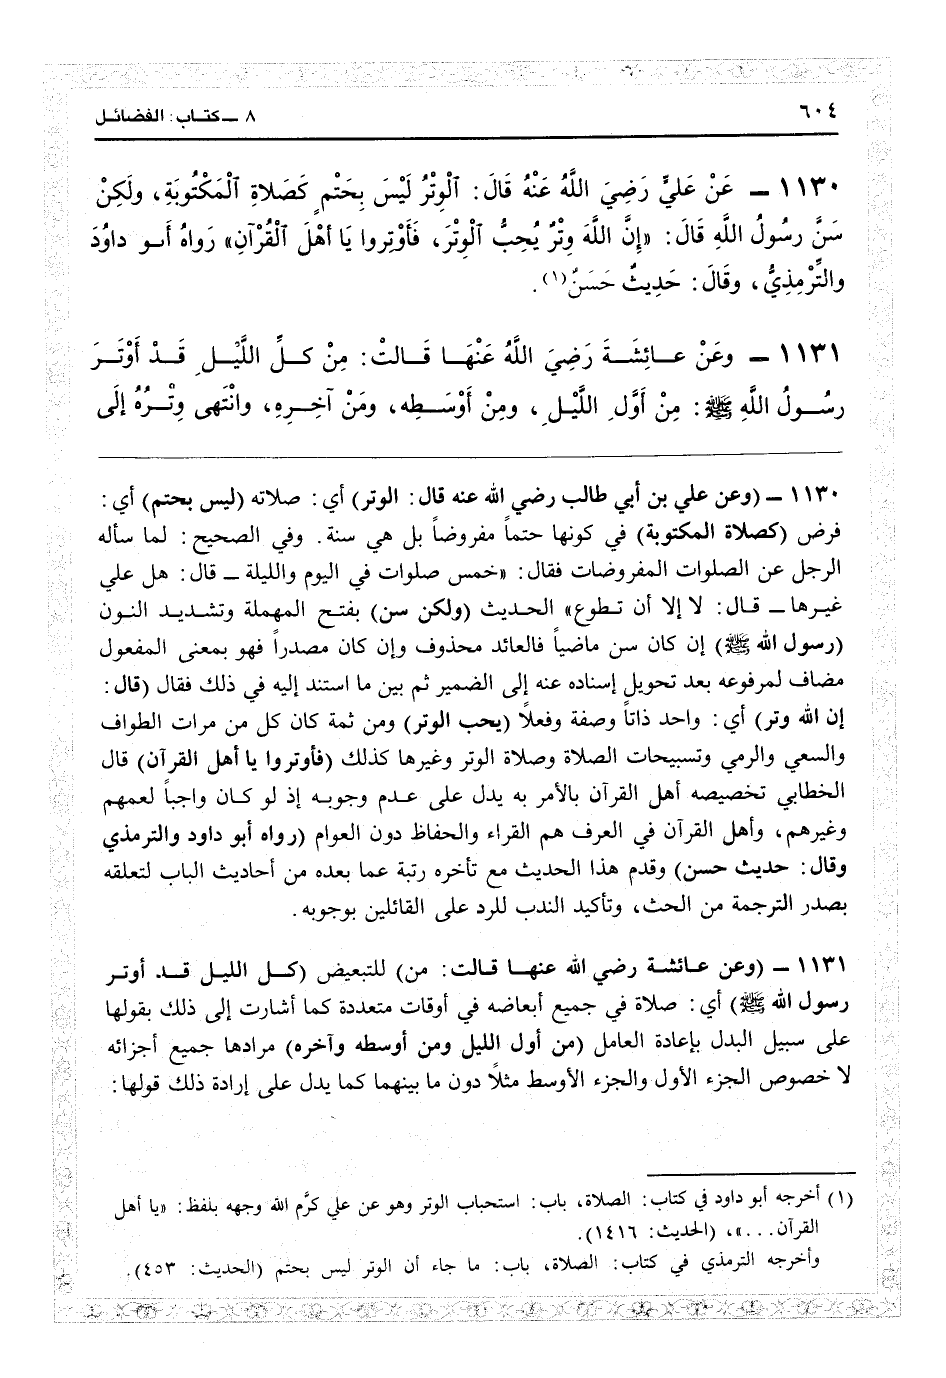 ٦٠٤
٨ ــ كتاب: الفضائل
١١٣٠ ــ عَنْ عَليٍّ رَضِيَ اللَّهُ عَنْهُ قَالَ: ٱلْوِتْرُ لَيْسَ بِحَتْمٍ كَصَلاةِ ٱلْمَكْتُوبَةِ، ولَكِنْ
سَنَّ رسُولُ اللَّهِ قَالَ: «إِنَّ اللَّهَ وِتْرٌ يُحِبُّ ٱلْوِتْرَ، فَأَوْتِروا يَا أَهْلَ ٱلْقُرْآنِ» رَواهُ أَبو داوُدَ
والتِّرْمِذِيُّ، وقَالَ: حَدِيثٌ حَسَنٌ(١).
١١٣١ ــ وعَنْ عائِشَةَ رَضِيَ اللَّهُ عَنْهَا قَالتْ: مِنْ كلِّ اللَّيْلِ قَدْ أَوْتَرَ
رسُولُ اللَّهِ ﷺ: مِنْ أَوَّلِ اللَّيْلِ، ومِنْ أَوْسَطِه، ومَنْ آخِرِهِ، وانْتَهى وِتْرُهُ إِلَى
١١٣٠ ــ (وعن علي بن أبي طالب رضي الله عنه قال: الوتر) أي: صلاته (ليس بحتم) أي:
فرض (كصلاة المكتوبة) في كونها حتماً مفروضاً بل هي سنة. وفي الصحيح: لما سأله
الرجل عن الصلوات المفروضات فقال: «خمس صلوات في اليوم والليلة ــ قال: هل علي
غيرها ــ قال: لا إلا أن تطوع» الحديث (ولكن سن) بفتح المهملة وتشديد النون
(رسول الله ﷺ) إن كان سن ماضياً فالعائد محذوف وإن كان مصدراً فهو بمعنى المفعول
مضاف لمرفوعه بعد تحويل إسناده عنه إلى الضمير ثم بين ما استند إليه في ذلك فقال (قال:
إن الله وتر) أي: واحد ذاتاً وصفة وفعلاً (يحب الوتر) ومن ثمة كان كل من مرات الطواف
والسعي والرمي وتسبيحات الصلاة وصلاة الوتر وغيرها كذلك (فأوتروا يا أهل القرآن) قال
الخطابي تخصيصه أهل القرآن بالأمر به يدل على عدم وجوبه إذ لو كان واجباً لعمهم
وغيرهم، وأهل القرآن في العرف هم القراء والحفاظ دون العوام (رواه أبو داود والترمذي
وقال: حديث حسن) وقدم هذا الحديث مع تأخره رتبة عما بعده من أحاديث الباب لتعلقه
بصدر الترجمة من الحث، وتأكيد الندب للرد على القائلين بوجوبه.
١١٣١ ــ (وعن عائشة رضي الله عنها قالت: من) للتبعيض (كل الليل قد أوتر
رسول الله ﷺ) أي: صلاة في جميع أبعاضه في أوقات متعددة كما أشارت إلى ذلك بقولها
على سبيل البدل بإعادة العامل (من أول الليل ومن أوسطه وآخره) مرادها جميع أجزائه
لا خصوص الجزء الأول والجزء الأوسط مثلاً دون ما بينهما كما يدل على إرادة ذلك قولها:
(١) أخرجه أبو داود في كتاب: الصلاة، باب: استحباب الوتر وهو عن علي كرَّم الله وجهه بلفظ: «يا أهل
القرآن...»، (الحديث: ١٤١٦).
وأخرجه الترمذي في كتاب: الصلاة، باب: ما جاء أن الوتر ليس بحتم (الحديث: ٤٥٣).